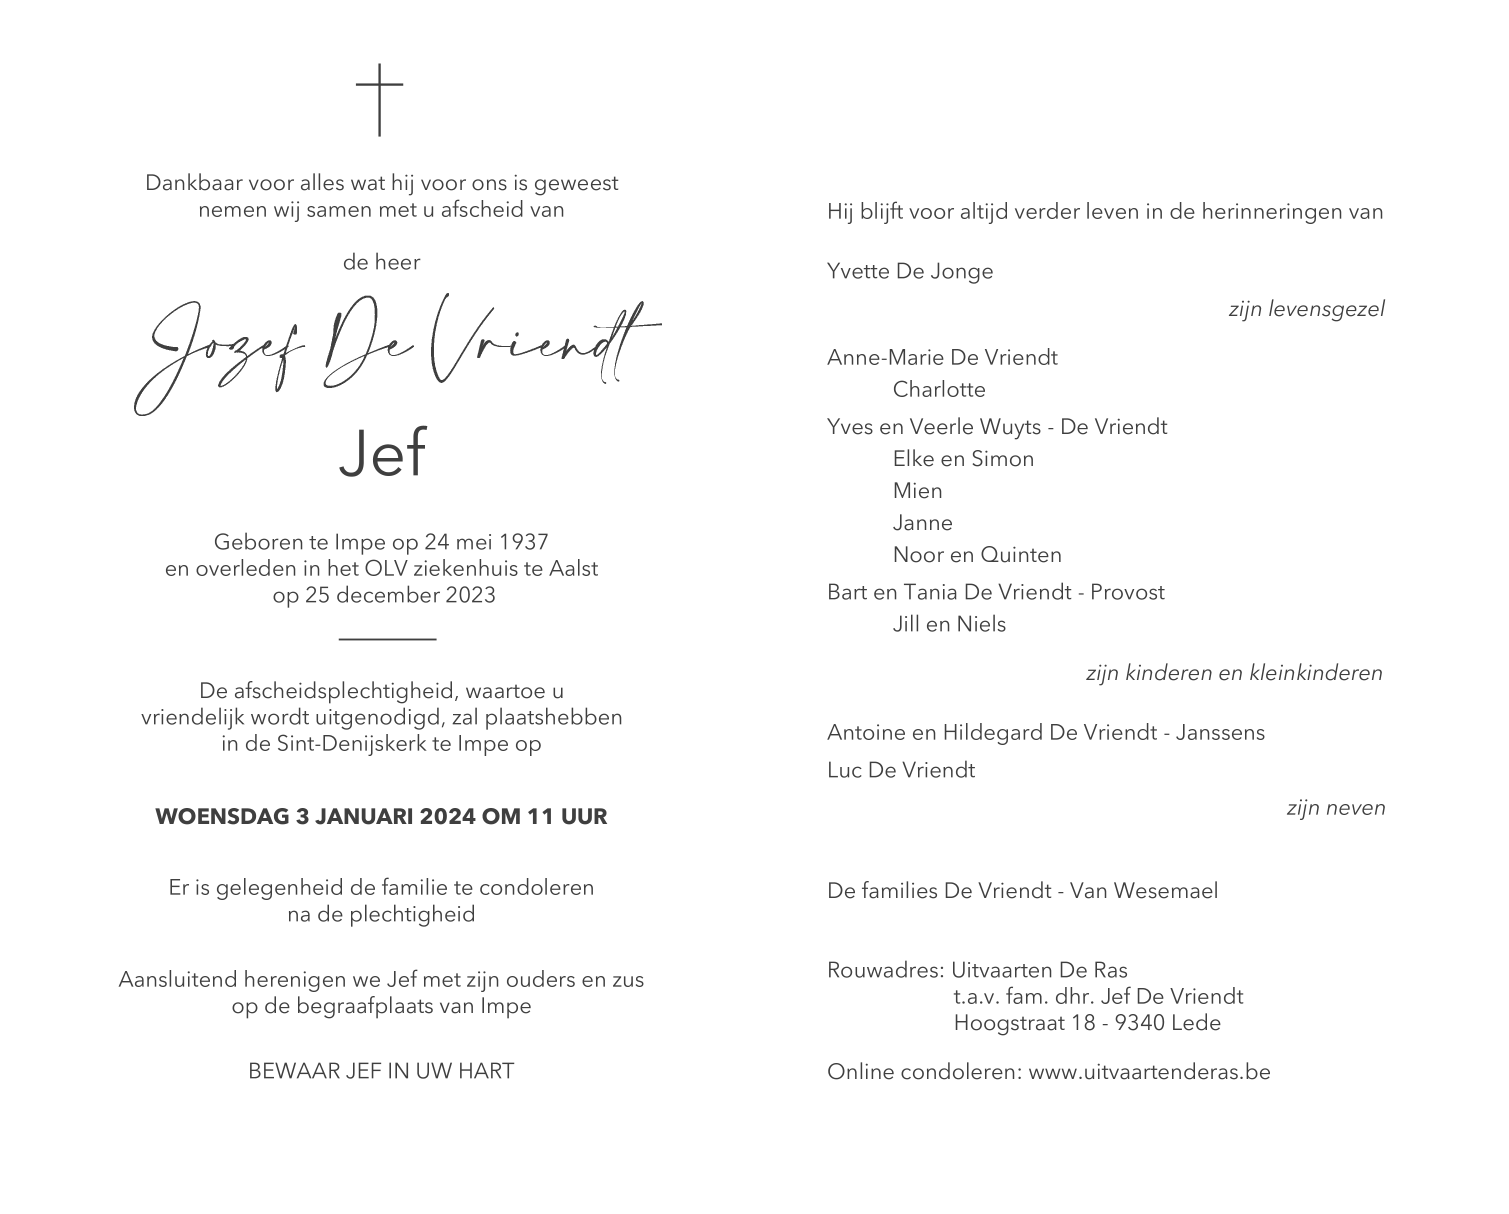 Dankbaar voor alles wat hij voor ons is geweest
nemen wij samen met u afscheid van
de heer
Jozef De Vriendt
Jef
Geboren te Impe op 24 mei 1937
en overleden in het OLV ziekenhuis te Aalst
op 25 december 2023
De afscheidsplechtigheid, waartoe u
vriendelijk wordt uitgenodigd, zal plaatshebben
in de Sint-Denijskerk te Impe op
WOENSDAG 3 JANUARI 2024 OM 11 UUR
Er is gelegenheid de familie te condoleren
na de plechtigheid
Aansluitend herenigen we Jef met zijn ouders en zus
op de begraafplaats van Impe
BEWAAR JEF IN UW HART
Hij blijft voor altijd verder leven in de herinneringen van
Yvette De Jonge
zijn levensgezel
Anne-Marie De Vriendt
Charlotte
Yves en Veerle Wuyts - De Vriendt
Elke en Simon
Mien
Janne
Noor en Quinten
Bart en Tania De Vriendt - Provost
Jill en Niels
zijn kinderen en kleinkinderen
Antoine en Hildegard De Vriendt - Janssens
Luc De Vriendt
zijn neven
De families De Vriendt - Van Wesemael
Rouwadres: Uitvaarten De Ras
t.a.v. fam. dhr. Jef De Vriendt
Hoogstraat 18 - 9340 Lede
Online condoleren: www.uitvaartenderas.be